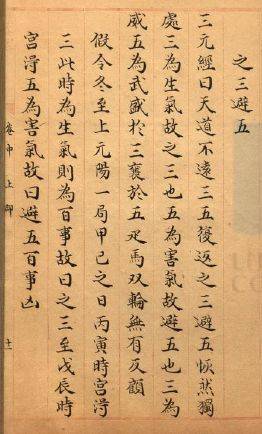 之三避五
三元經曰天道不遠三五復返之三避五恢然獨
處三為生氣故之三也五為害氣故避五也三為
威五為武盛於三衰於五疋馬双輪無有反顧
假令冬至上元陽一局甲己之日丙寅時宮淂
三此時為生氣則為百事故曰之三至戊辰時
宮淂五為害氣故曰避五百事凶
卷中上
十一